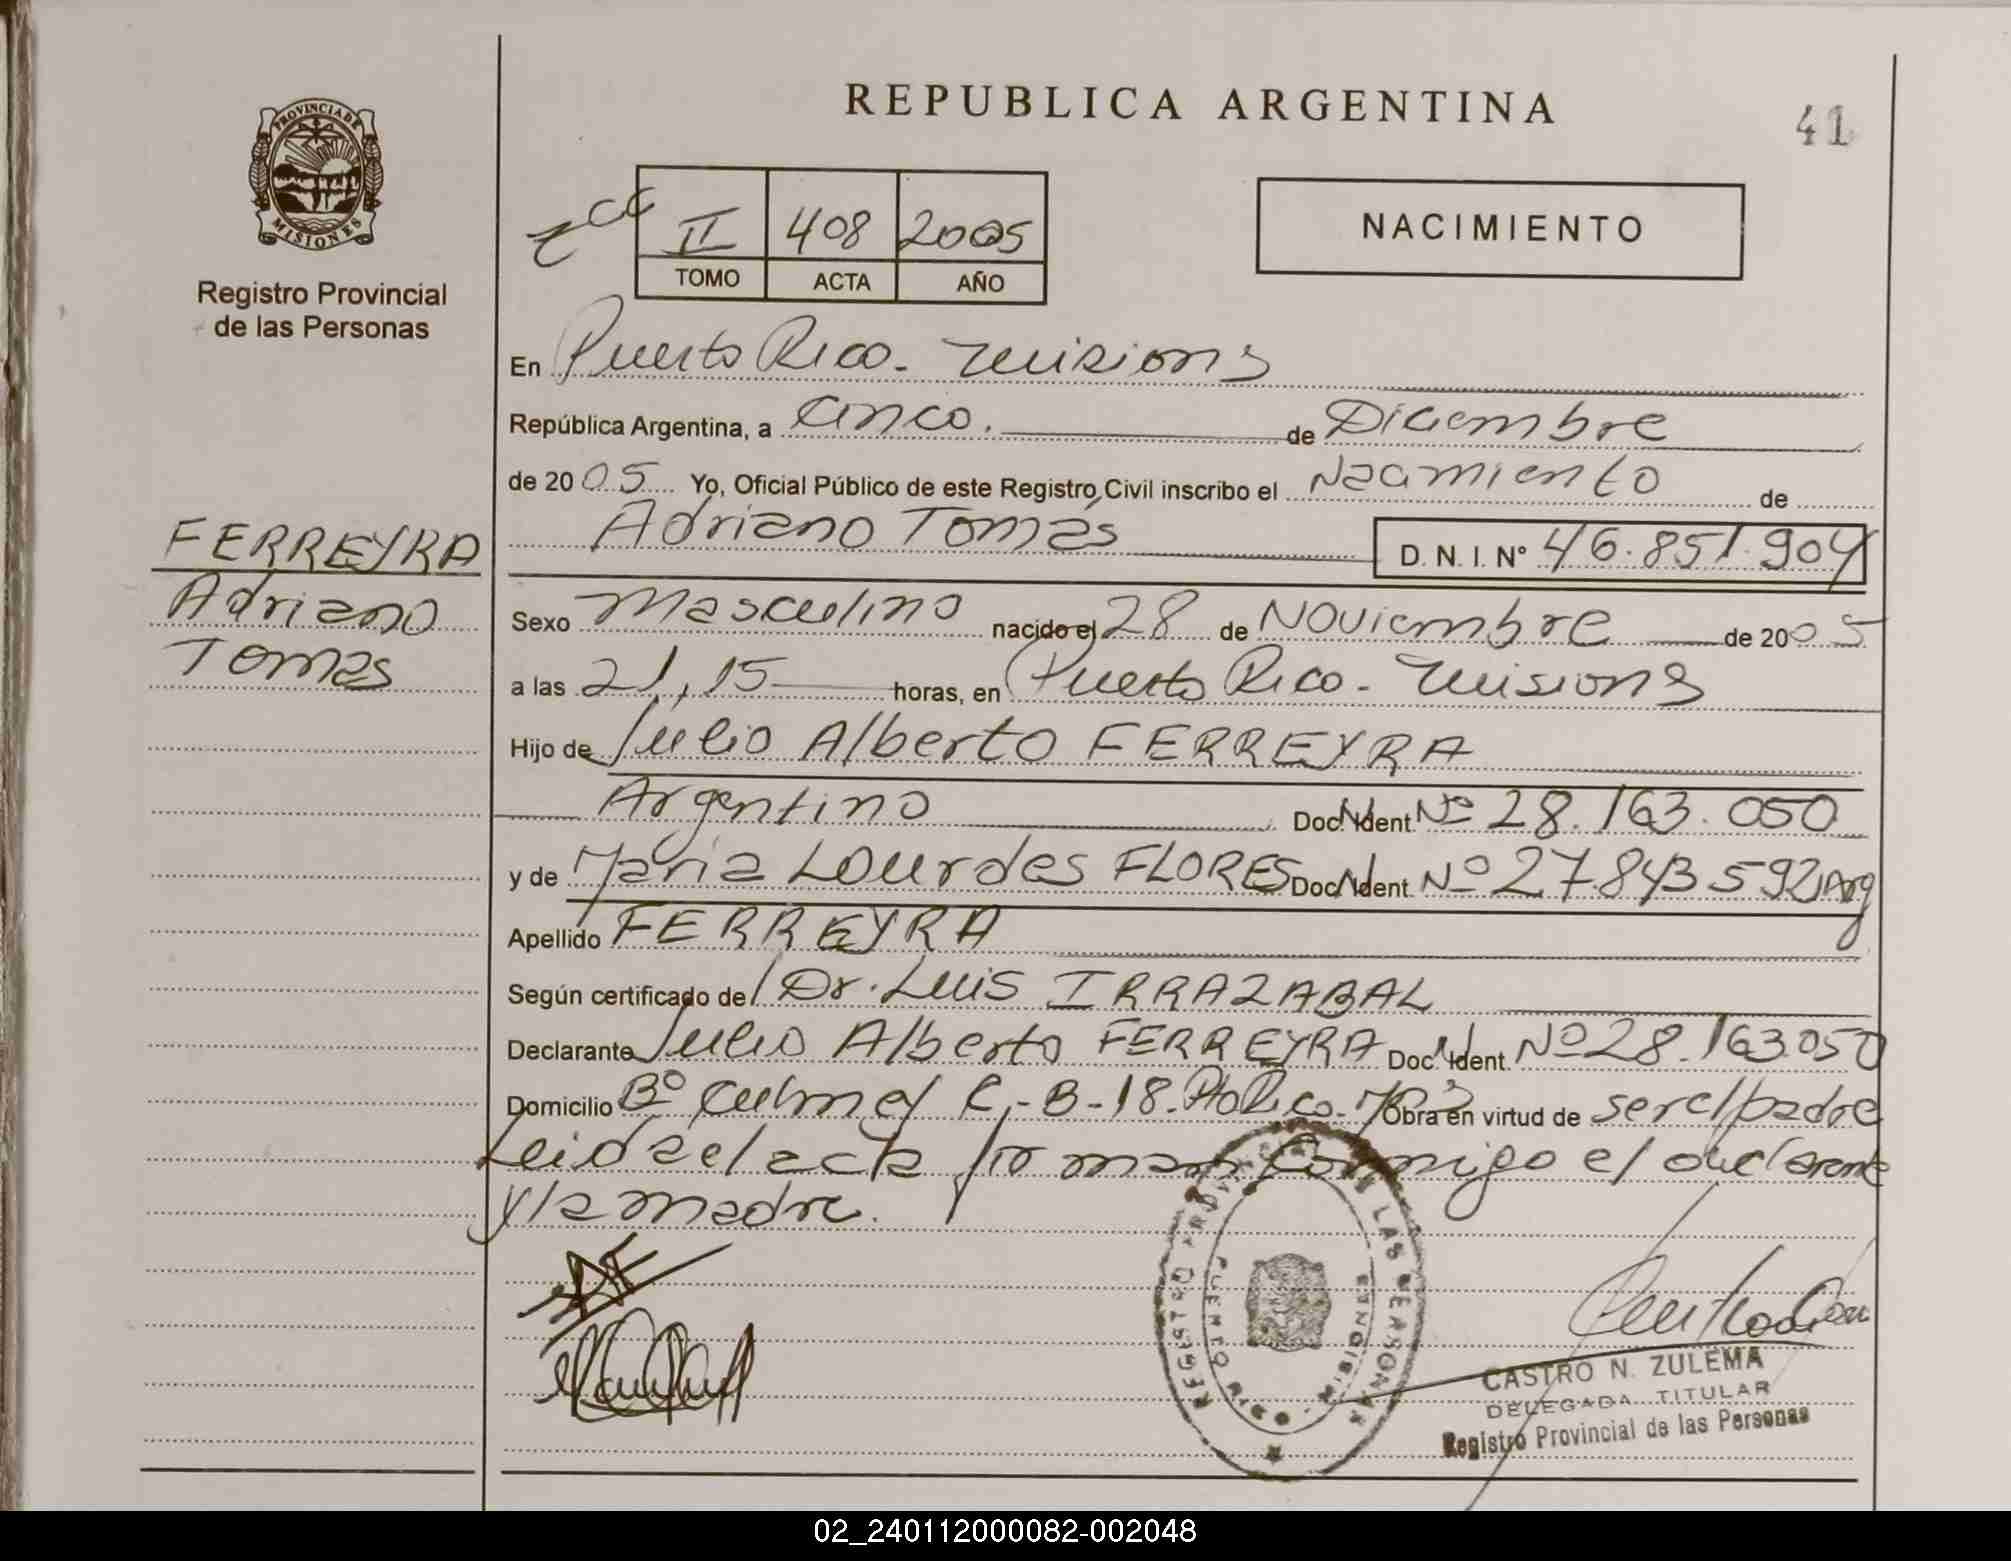 REPUBLICA ARGENTINA
41
PROVINCIA DE MISIONES
Registro Provincial
de las Personas
II 408 2005
TOMO ACTA AÑO
NACIMIENTO
En Puerto Rico. Misiones
República Argentina, a Cinco. de Diciembre
de 2005 Yo, Oficial Público de este Registro Civil inscribo el Nacimiento de
Adriano Tomás D. N. I. Nº 46.851.904
FERREYRA
Adriano
Tomas
Sexo Masculino nacido el 28 de Noviembre de 2005
a las 21,15 horas, en Puerto Rico. Misiones
Hijo de Julio Alberto FERREYRA
Argentino Doc. Ident. Nº 28.163.050
y de Maria Lourdes FLORES Doc. Ident. Nº 27.843592 Arg
Apellido FERREYRA
Según certificado de Dr. Luis IRRAZABAL
Declarante Julio Alberto FERREYRA Doc. Ident. Nº 28.163.050
Domicilio Bº Culmey C-B-18. Pto Rico. Obra en virtud de ser el padre
Leida el acta firman conmigo el declarante
y la madre.
REGISTRO PROVINCIAL DE LAS PERSONAS
PUERTO RICO - MISIONES
CASTRO N. ZULEMA
DELEGADA TITULAR
Registro Provincial de las Personas
02_240112000082-002048